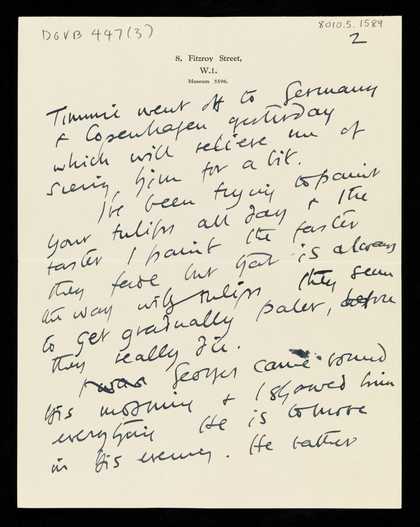 DGVB 447(3)
8010.5.1589
2
8. Fitzroy Street,
W.1.
Museum 5596.
Timmie went off to Germany
& Copenhagen yesterday
which will relieve me of
seeing him for a bit.
I've been trying to paint
your tulips all day & the
faster I paint the faster
they fade but that is always
the way with tulips they seem
to get gradually paler, before
they really die.
I was Georges came round
this morning & I showed him
everything He is to move
in this evening. He rather